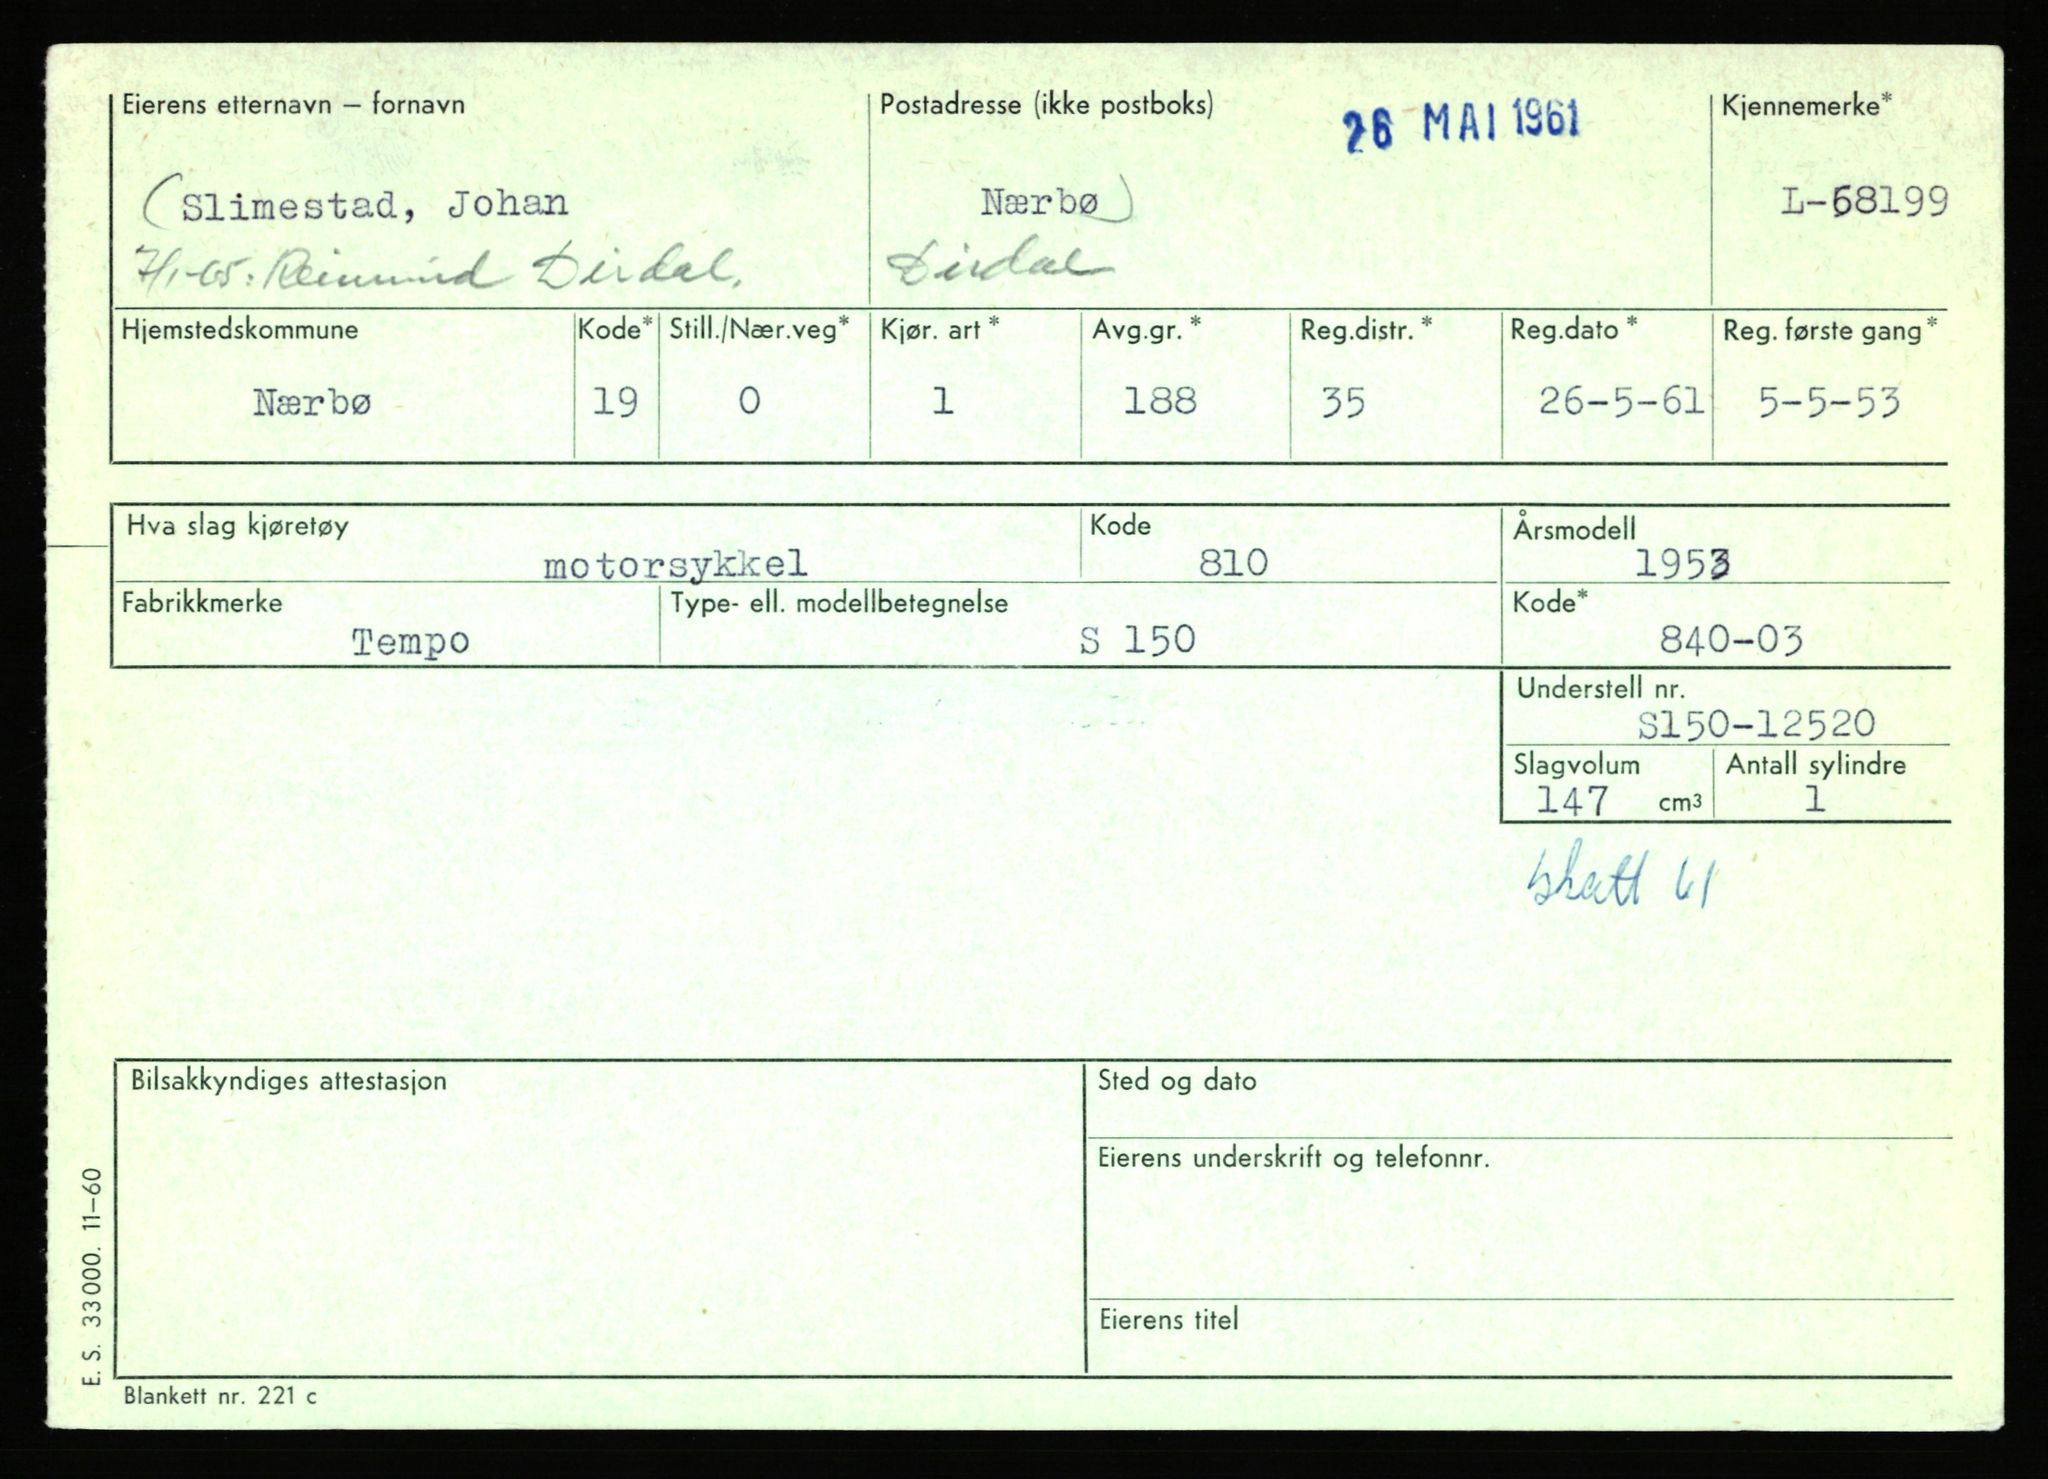 Eierens etternavn – fornavn
Postadresse (ikke postboks)
26 MAI 1961
Kjennemerke*
(Slimestad, Johan
Nærbø)
L-58199
7/1-65. Reimund Dirdal.
Dirdal
Hjemstedskommune
Kode*
Still./Nær.veg*
Kjør. art*
Avg.gr.*
Reg.distr.*
Reg.dato*
Reg. første gang*
Nærbø
19
0
1
188
35
26-5-61
5-5-53
Hva slag kjøretøy
motorsykkel
Kode
810
Årsmodell
1953
Fabrikkmerke
Tempo
Type- ell. modellbetegnelse
S 150
Kode*
840-03
Understell nr.
S150-12520
Slagvolum
147 cm3
Antall sylindre
1
skatt 61
Bilsakkyndiges attestasjon
Sted og dato
Eierens underskrift og telefonnr.
Eierens titel
E. S. 33000. 11–60
Blankett nr. 221 c